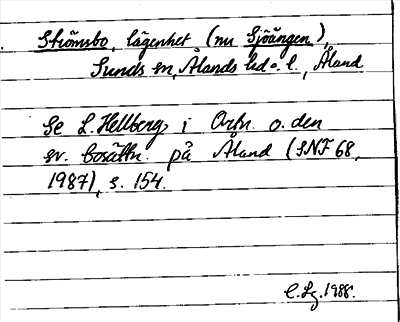 Strömsbo, lägenhet (nu Sjöängen),
Sunds sn, Ålands hd o. l., Åland
Se L. Hellberg, i Ortn. o. den
sv. bosättn. på Åland (SNF 68,
1987), s. 154.
C. Lg. 1988.